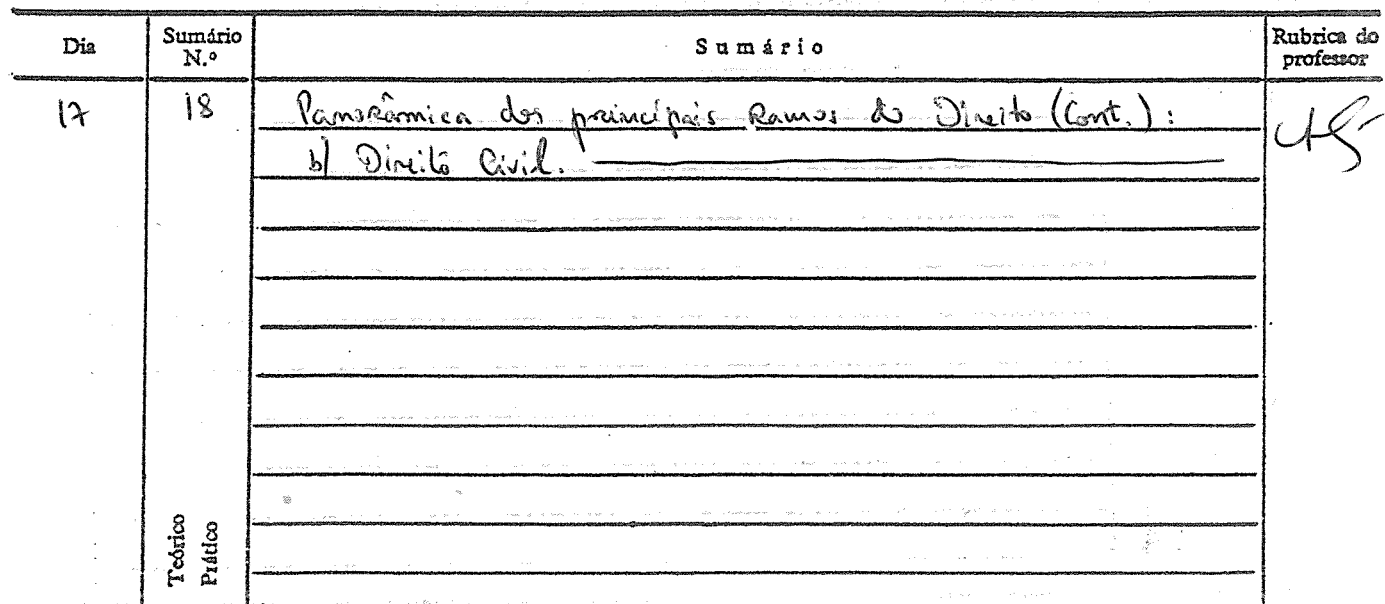 Dia
Sumário
N.º
Sumário
Rubrica do
professor
17
18
Panorâmica dos principais Ramos do Direito (Cont.):
b) Direito Civil.
Teórico
Prático